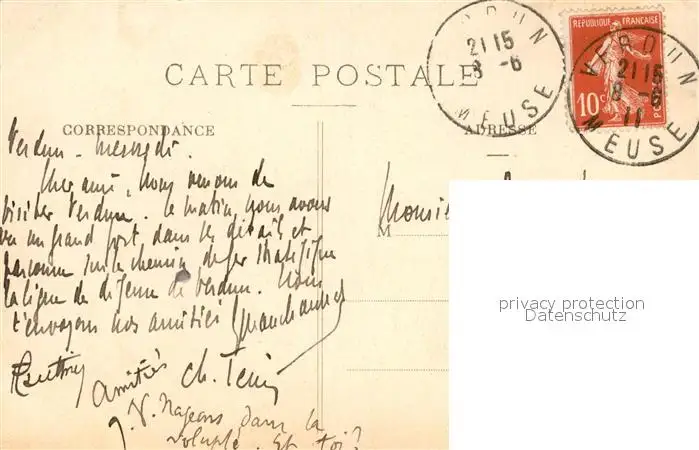 VERDUN
21 15
8 -6
MEUSE
REPUBLIQUE FRANÇAISE
10c
POSTES
VERDUN
21 15
8 -6
11
MEUSE
CARTE POSTALE
CORRESPONDANCE
ADRESSE
Verdun - mercredi.
Cher ami, nous venons de
visiter Verdun. Le matin, nous avons
vu un grand fort, dans les détails et
parcouru sur le chemin de fer stratégique
la ligne de défense de Verdun. Nous
t'envoyons nos amitiés
M
Amitiés
Ch.
Nageons dans la
volupté. Et toi?
privacy protection
Datenschutz